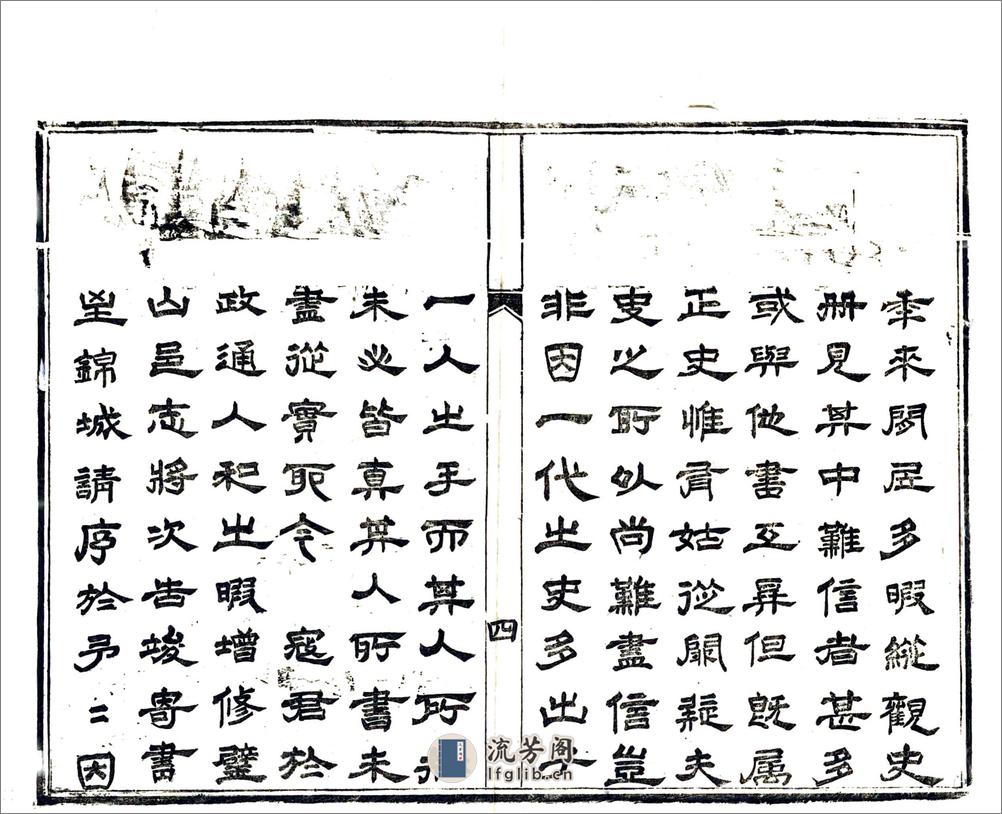 年來閒居多暇縱觀史
冊見其中難信者甚多
或與他書互異但既属
正史惟有姑從闕疑夫
史之所以尚難盡信豈
非因一代之史多出
四
一人之手而其人所
未必皆真其人所書未
盡從實耶今 寇君於
政通人和之暇增修璧
山邑志將次告竣寄書
至錦城請序於予二因
流芳阁
lfglib.cn